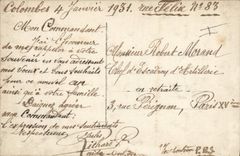 Colombes 4 Janvier 1931. rue Félix N° 83
Mon Commandant
J'ai l'honneur
de me rappeler à votre
Souvenir en vous adressant
mes voeux et tous souhaits
pour ce nouvel an
ainsi qu'à votre famille
Daignez agréer
mon Commandant,
l'expression de mes sentiments
respectueux
Monsieur Robert Morand
Chef d'Escadrons d'Artillerie
en retraite
3, rue Pérignon, Paris XVe